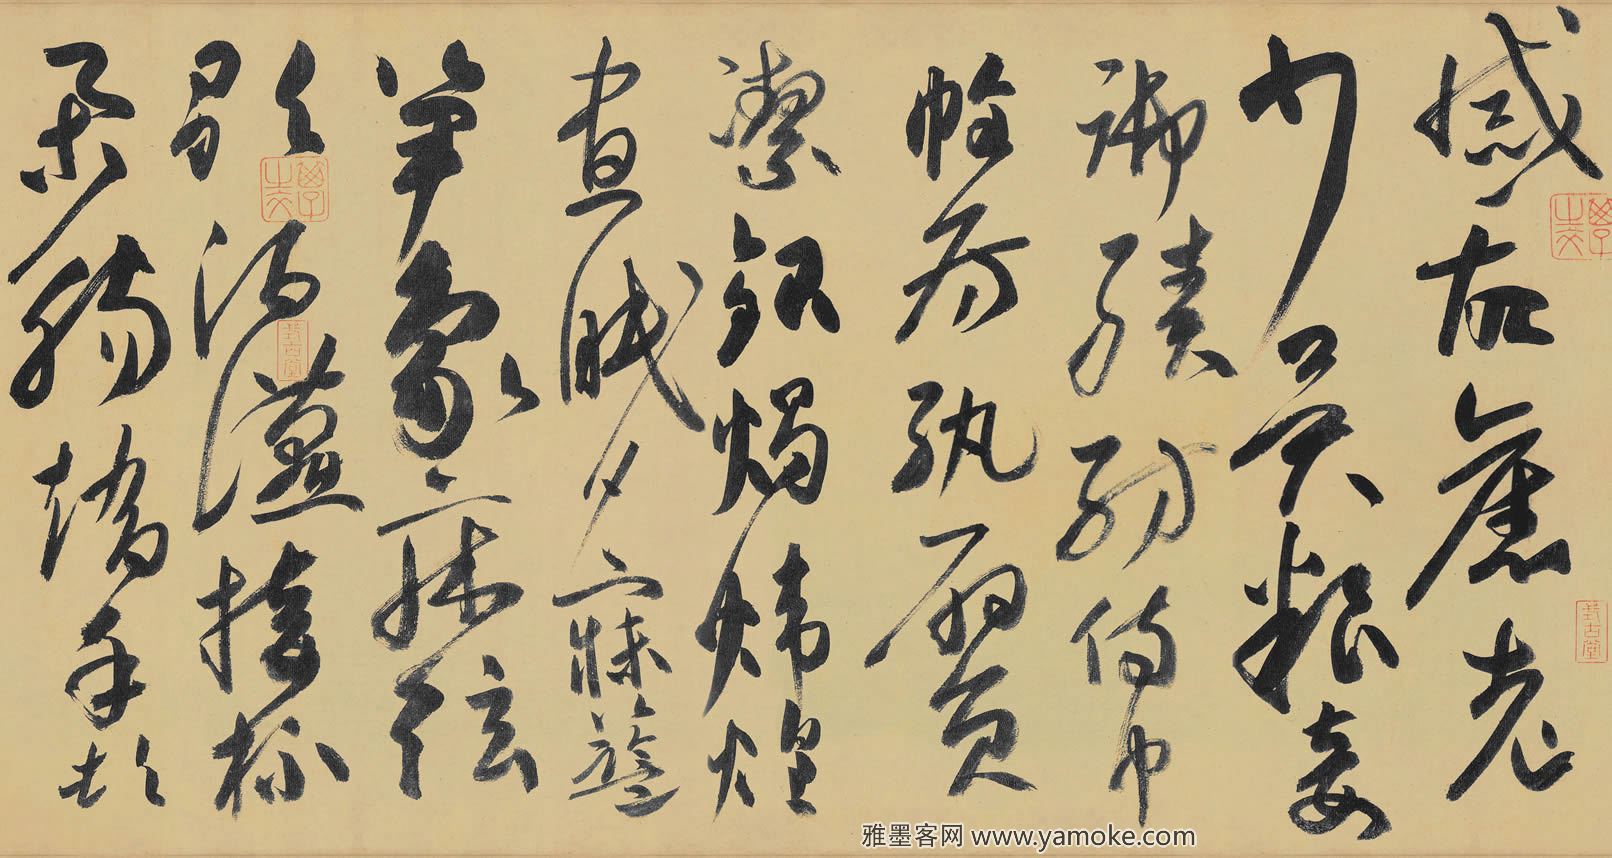 戚故舊老
少異粮妾
御績紡侍巾
帷房紈扇員
潔銀燭煒煌
晝眠夕寐藍
笋象床弦
歌酒讌接杯
舉觴矯手頓
式古堂
式古堂
雅墨客网 www.yamoke.com